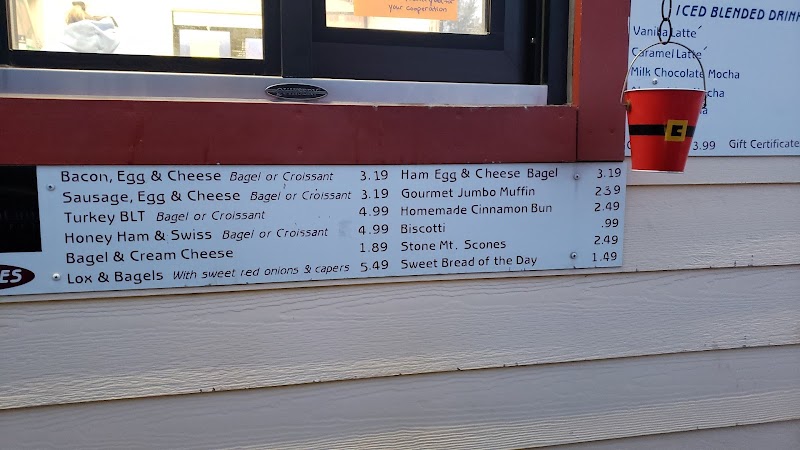 your cooperation
ICED BLENDED DRINK
Vanilla Latte
Caramel Latte
Milk Chocolate Mocha
Mocha
3.99 Gift Certificate
Bacon, Egg & Cheese Bagel or Croissant 3.19
Sausage, Egg & Cheese Bagel or Croissant 3.19
Turkey BLT Bagel or Croissant 4.99
Honey Ham & Swiss Bagel or Croissant 4.99
Bagel & Cream Cheese 1.89
Lox & Bagels With sweet red onions & capers 5.49
Ham Egg & Cheese Bagel 3.19
Gourmet Jumbo Muffin 2.39
Homemade Cinnamon Bun 2.49
Biscotti .99
Stone Mt. Scones 2.49
Sweet Bread of the Day 1.49